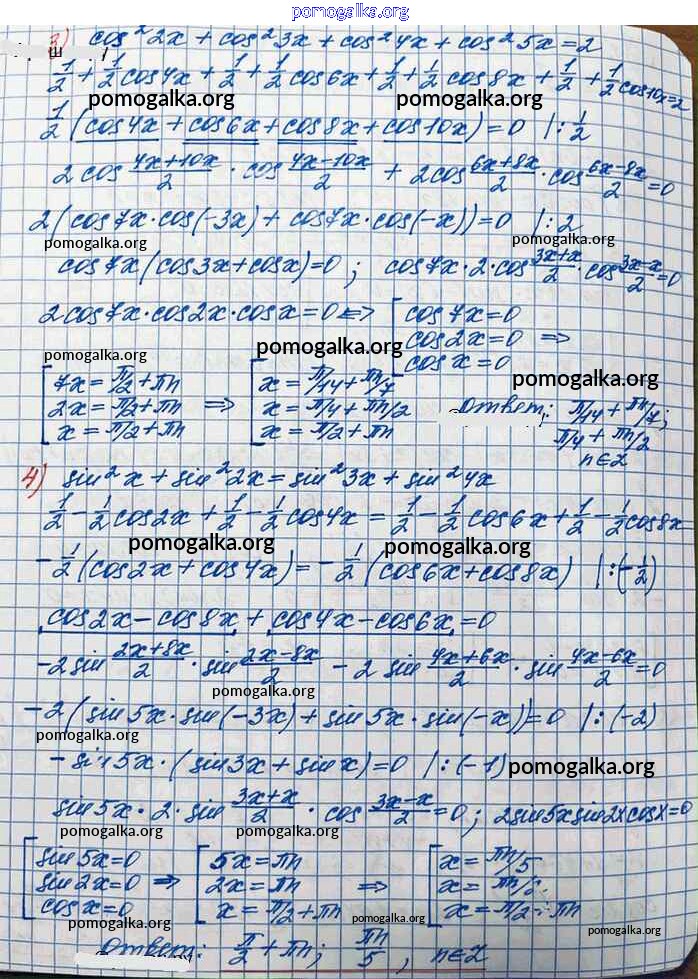 pomogalka.org
3) cos²2x + cos²3x + cos²4x + cos²5x = 2
ш
1/2 + 1/2 cos4x + 1/2 + 1/2 cos6x + 1/2 + 1/2 cos8x + 1/2 + 1/2 cos10x = 2
pomogalka.org pomogalka.org
1/2 (cos4x + cos6x + cos8x + cos10x) = 0 | : 1/2
2cos (4x+10x)/2 · cos (4x-10x)/2 + 2cos (6x+8x)/2 · cos (6x-8x)/2 = 0
2(cos7x·cos(-3x) + cos7x·cos(-x)) = 0 | : 2
pomogalka.org pomogalka.org
cos7x(cos3x + cosx) = 0 ; cos7x·2·cos (3x+x)/2 · cos (3x-x)/2 = 0
2cos7x·cos2x·cosx = 0 <=> [ cos7x = 0
cos2x = 0 =>
pomogalka.org pomogalka.org cos x = 0
pomogalka.org
[ 7x = π/2 + πn [ x = π/14 + πn/7
2x = π/2 + πn => x = π/4 + πn/2 Ответ: π/14 + πn/7;
x = π/2 + πn x = π/2 + πn π/4 + πn/2
n∈Z
4) sin²x + sin²2x = sin²3x + sin²4x
1/2 - 1/2 cos2x + 1/2 - 1/2 cos4x = 1/2 - 1/2 cos6x + 1/2 - 1/2 cos8x
pomogalka.org pomogalka.org
-1/2 (cos2x + cos4x) = -1/2 (cos6x + cos8x) | : (-1/2)
cos2x - cos8x + cos4x - cos6x = 0
-2sin (2x+8x)/2 · sin (2x-8x)/2 - 2 sin (4x+6x)/2 · sin (4x-6x)/2 = 0
pomogalka.org
-2(sin5x·sin(-3x) + sin5x·sin(-x)) = 0 | : (-2)
pomogalka.org
-sin5x·(sin3x + sinx) = 0 | : (-1) pomogalka.org
sin5x·2·sin (3x+x)/2 · cos (3x-x)/2 = 0 ; 2sin5xsin2xcosx = 0
pomogalka.org pomogalka.org pomogalka.org
[ sin5x = 0 [ 5x = πn [ x = πn/5
sin2x = 0 => 2x = πn => x = πn/
cosx = 0 x = π/2 + πn x = π/2 + πn
pomogalka.org pomogalka.org pomogalka.org
Ответ: π/2 + πn; πn/5, n∈Z